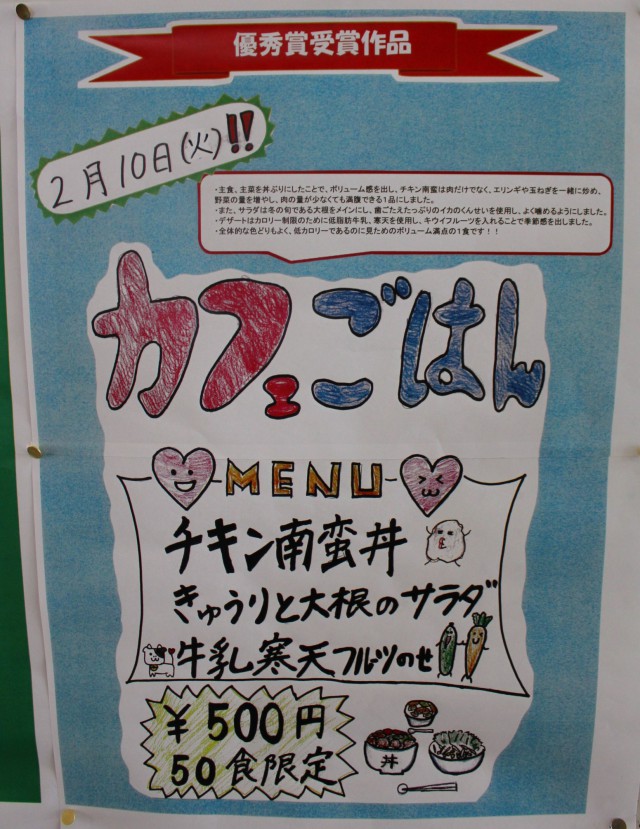 優秀賞受賞作品
2月10日(火)!!
・主食、主菜を丼ぶりにしたことで、ボリューム感を出し、チキン南蛮は肉だけでなく、エリンギや玉ねぎを一緒に炒め、
野菜の量を増やし、肉の量が少なくても満腹できる1品にしました。
・また、サラダは冬の旬である大根をメインにし、歯ごたえたっぷりのイカのくんせいを使用し、よく噛めるようにしました。
・デザートはカロリー制限のために低脂肪牛乳、寒天を使用し、キウイフルーツを入れることで季節感を出しました。
・全体的な色どりもよく、低カロリーであるのに見ためのボリューム満点の1食です!!
カフェごはん
MENU
チキン南蛮丼
きゅうりと大根のサラダ
牛乳寒天フルーツのせ
¥500円
50食限定
丼